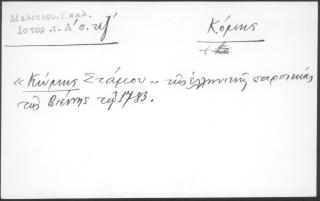 Μελετίου. Εκκλ.
Ιστορ. τ. Α΄ σ.
Κόμης
«Κόμης Στάμου» τῆς ἑλληνικῆς παροικίας
τῆς Βιέννης τῷ 1783.